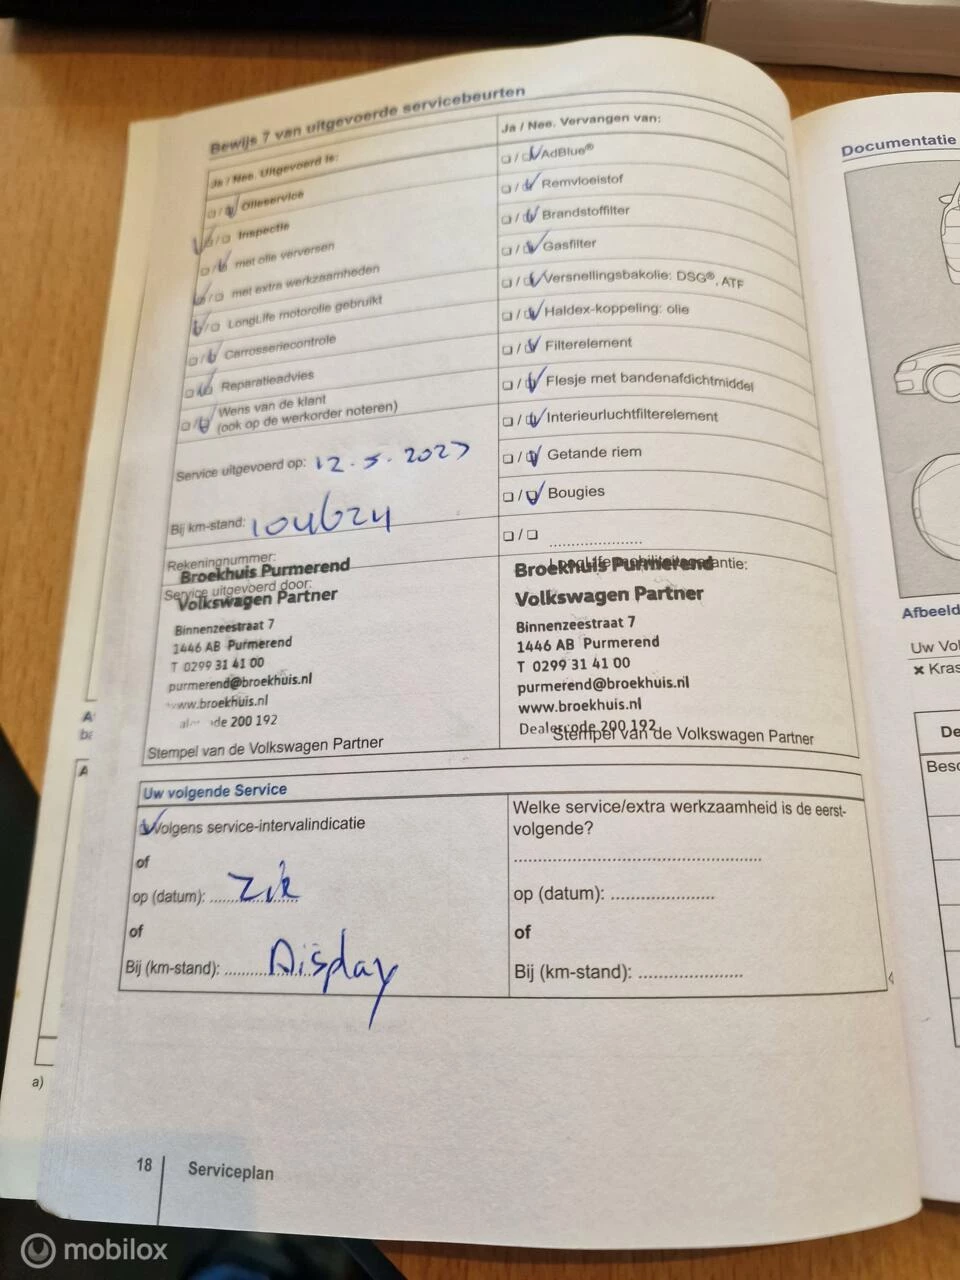 Bewijs 7 van uitgevoerde servicebeurten
Ja / Nee. Uitgevoerd is:
Olieservice
Inspectie
met olie verversen
met extra werkzaamheden
LongLife motorolie gebruikt
Carrosseriecontrole
Reparatieadvies
Wens van de klant
(ook op de werkorder noteren)
Service uitgevoerd op: 12.5.2023
Bij km-stand: 104624
Rekeningnummer:
Broekhuis Purmerend
Service uitgevoerd door:
Volkswagen Partner
Binnenzeestraat 7
1446 AB Purmerend
T 0299 31 41 00
purmerend@broekhuis.nl
www.broekhuis.nl
de 200 192
Stempel van de Volkswagen Partner
Ja / Nee. Vervangen van:
AdBlue®
Remvloeistof
Brandstoffilter
Gasfilter
Versnellingsbakolie: DSG®, ATF
Haldex-koppeling: olie
Filterelement
Flesje met bandenafdichtmiddel
Interieurluchtfilterelement
Getande riem
Bougies
Broekhuis Purmerend
Volkswagen Partner
Binnenzeestraat 7
1446 AB Purmerend
T 0299 31 41 00
purmerend@broekhuis.nl
www.broekhuis.nl
Dealercode 200 192
Stempel van de Volkswagen Partner
Uw volgende Service
Volgens service-intervalindicatie
of
op (datum): Zie
of
Bij (km-stand): Display
Welke service/extra werkzaamheid is de eerst-
volgende?
op (datum):
of
Bij (km-stand):
18 Serviceplan
a)
Documentatie
Afbeeld
Uw Vol
Kras
De
Besc
mobilox